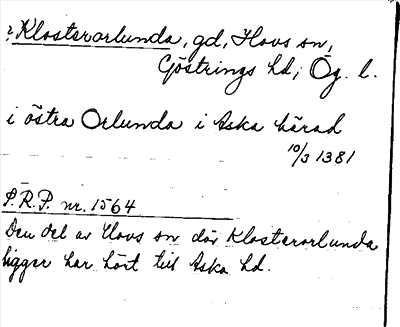 ? Klosterorlunda, gd, Hovs sn,
Göstrings hd, Ög. l.
i östra Orlunda i Aska härad
10/3 1381
S.R.P. nr. 1564
Den del av Hovs sn där Klosterorlunda
ligger har hört till Aska hd.